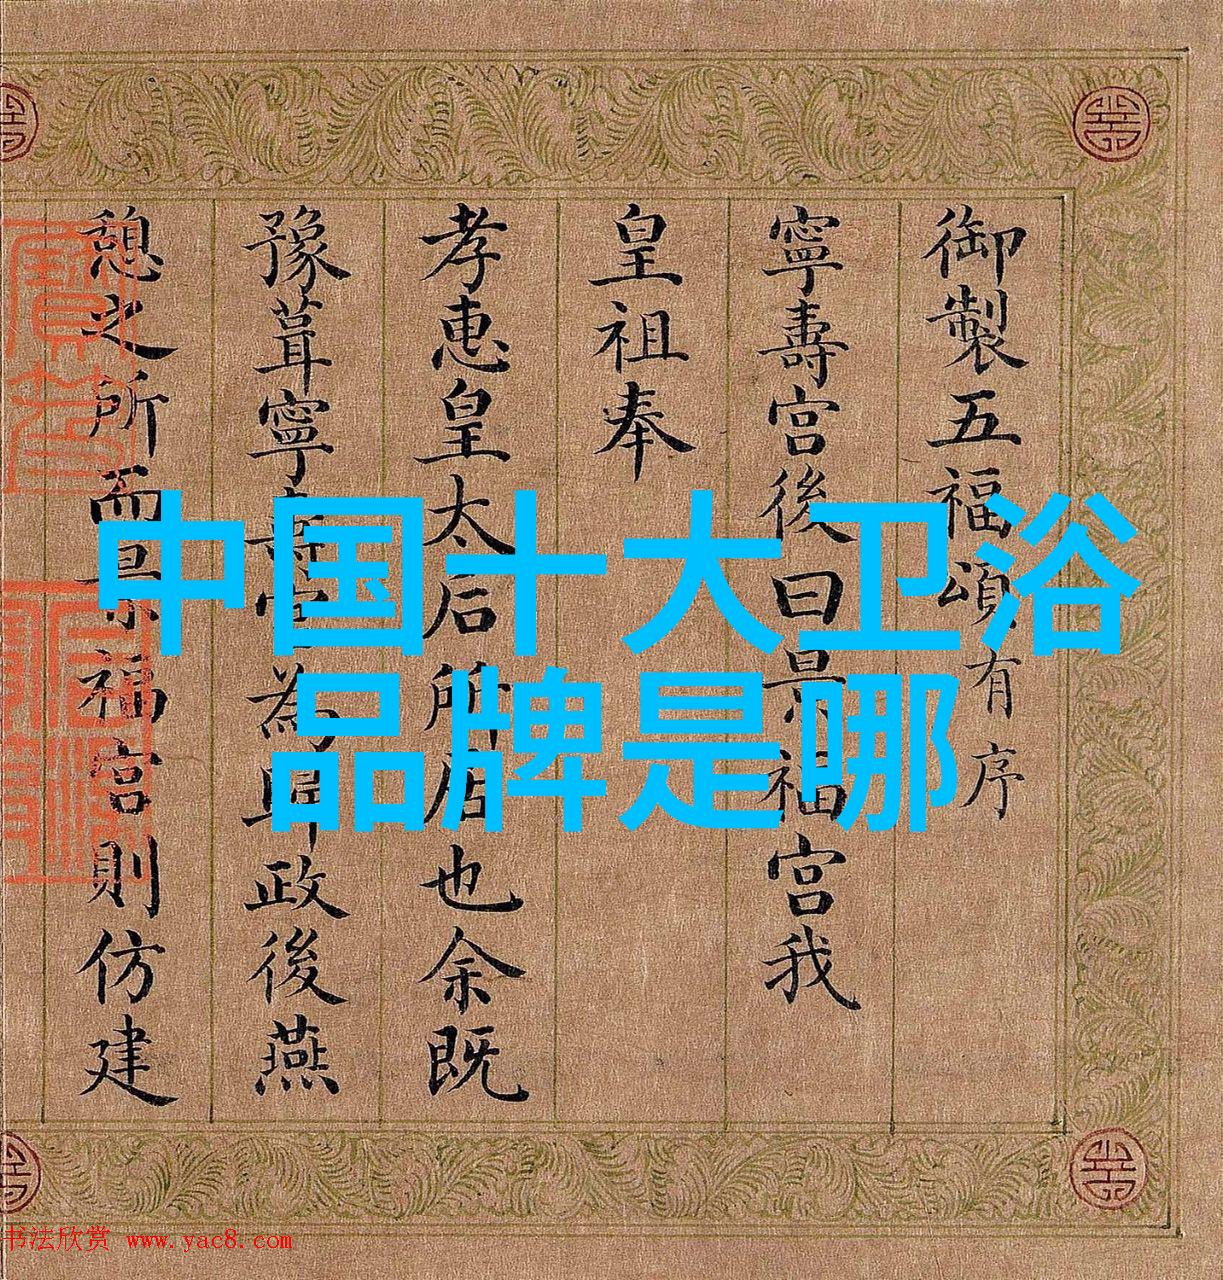 御製五福頌有序
寧壽宮後曰景福宮我
皇祖奉
孝惠皇太后所居也余既
豫葺寧壽宮為歸政後燕
憩之所而景福宮則仿建
中国十大卫浴
品牌是哪
书法欣赏 www.yac8.com